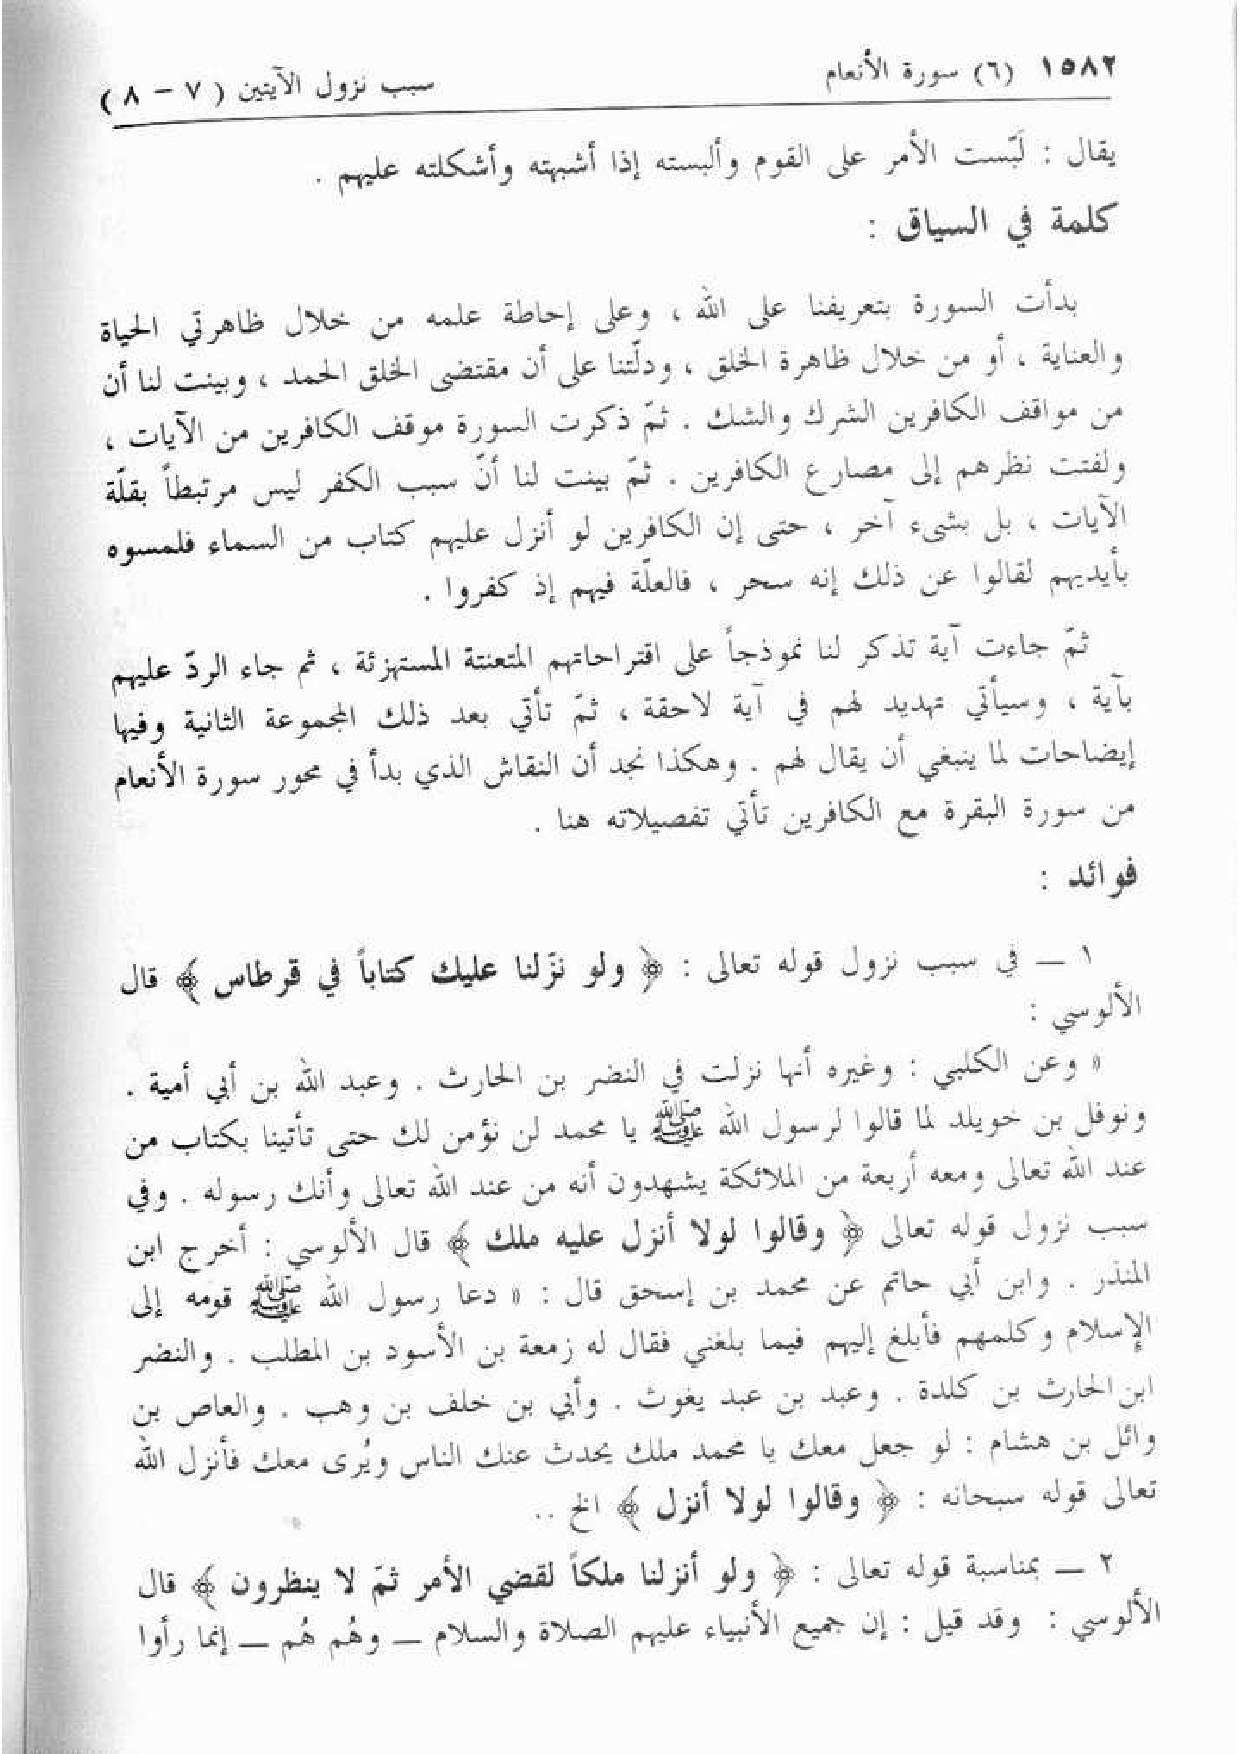 ١٥٨٢ (٦) سورة الأنعام سبب نزول الآيتين ( ٧ – ٨ )
يقال : لَبّست الأمر على القوم وألبسته إذا أشبهته وأشكلته عليهم .
كلمة في السياق :
بدأت السورة بتعريفنا على الله ، وعلى إحاطة علمه من خلال ظاهرتي الحياة
والعناية ، أو من خلال ظاهرة الخلق ، ودلّتنا على أن مقتضى الخلق الحمد ، وبينت لنا أن
من مواقف الكافرين الشرك والشك . ثمّ ذكرت السورة موقف الكافرين من الآيات ،
ولفتت نظرهم إلى مصارع الكافرين . ثمّ بينت لنا أنّ سبب الكفر ليس مرتبطاً بقلّة
الآيات ، بل بشيء آخر ، حتى إن الكافرين لو أنزل عليهم كتاب من السماء فلمسوه
بأيديهم لقالوا عن ذلك إنه سحر ، فالعلّة فيهم إذ كفروا .
ثمّ جاءت آية تذكر لنا نموذجاً على اقتراحاتهم المتعنتة المستهزئة ، ثم جاء الردّ عليهم
بآية ، وسيأتي تهديد لهم في آية لاحقة ، ثمّ تأتي بعد ذلك المجموعة الثانية وفيها
إيضاحات لما ينبغي أن يقال لهم . وهكذا نجد أن النقاش الذي بدأ في محور سورة الأنعام
من سورة البقرة مع الكافرين تأتي تفصيلاته هنا .
فوائد :
١ — في سبب نزول قوله تعالى : ﴿ ولو نزّلنا عليك كتاباً في قرطاس ﴾ قال
الألوسي :
« وعن الكلبي : وغيره أنها نزلت في النضر بن الحارث . وعبد الله بن أبي أمية .
ونوفل بن خويلد لما قالوا لرسول الله ﷺ يا محمد لن نؤمن لك حتى تأتينا بكتاب من
عند الله تعالى ومعه أربعة من الملائكة يشهدون أنه من عند الله تعالى وأنك رسوله . وفي
سبب نزول قوله تعالى ﴿ وقالوا لولا أنزل عليه ملك ﴾ قال الألوسي : أخرج ابن
المنذر . وابن أبي حاتم عن محمد بن إسحق قال : « دعا رسول الله ﷺ قومه إلى
الإسلام وكلمهم فأبلغ إليهم فيما بلغني فقال له زمعة بن الأسود بن المطلب . والنضر
ابن الحارث بن كلدة . وعبد بن عبد يغوث . وأبي بن خلف بن وهب . والعاص بن
وائل بن هشام : لو جعل معك يا محمد ملك يحدث عنك الناس ويُرى معك فأنزل الله
تعالى قوله سبحانه : ﴿ وقالوا لولا أنزل ﴾ الخ ..
٢ — بمناسبة قوله تعالى : ﴿ ولو أنزلنا ملكاً لقضي الأمر ثمّ لا ينظرون ﴾ قال
الألوسي : وقد قيل : إن جميع الأنبياء عليهم الصلاة والسلام — وهُم هُم — إنما رأوا